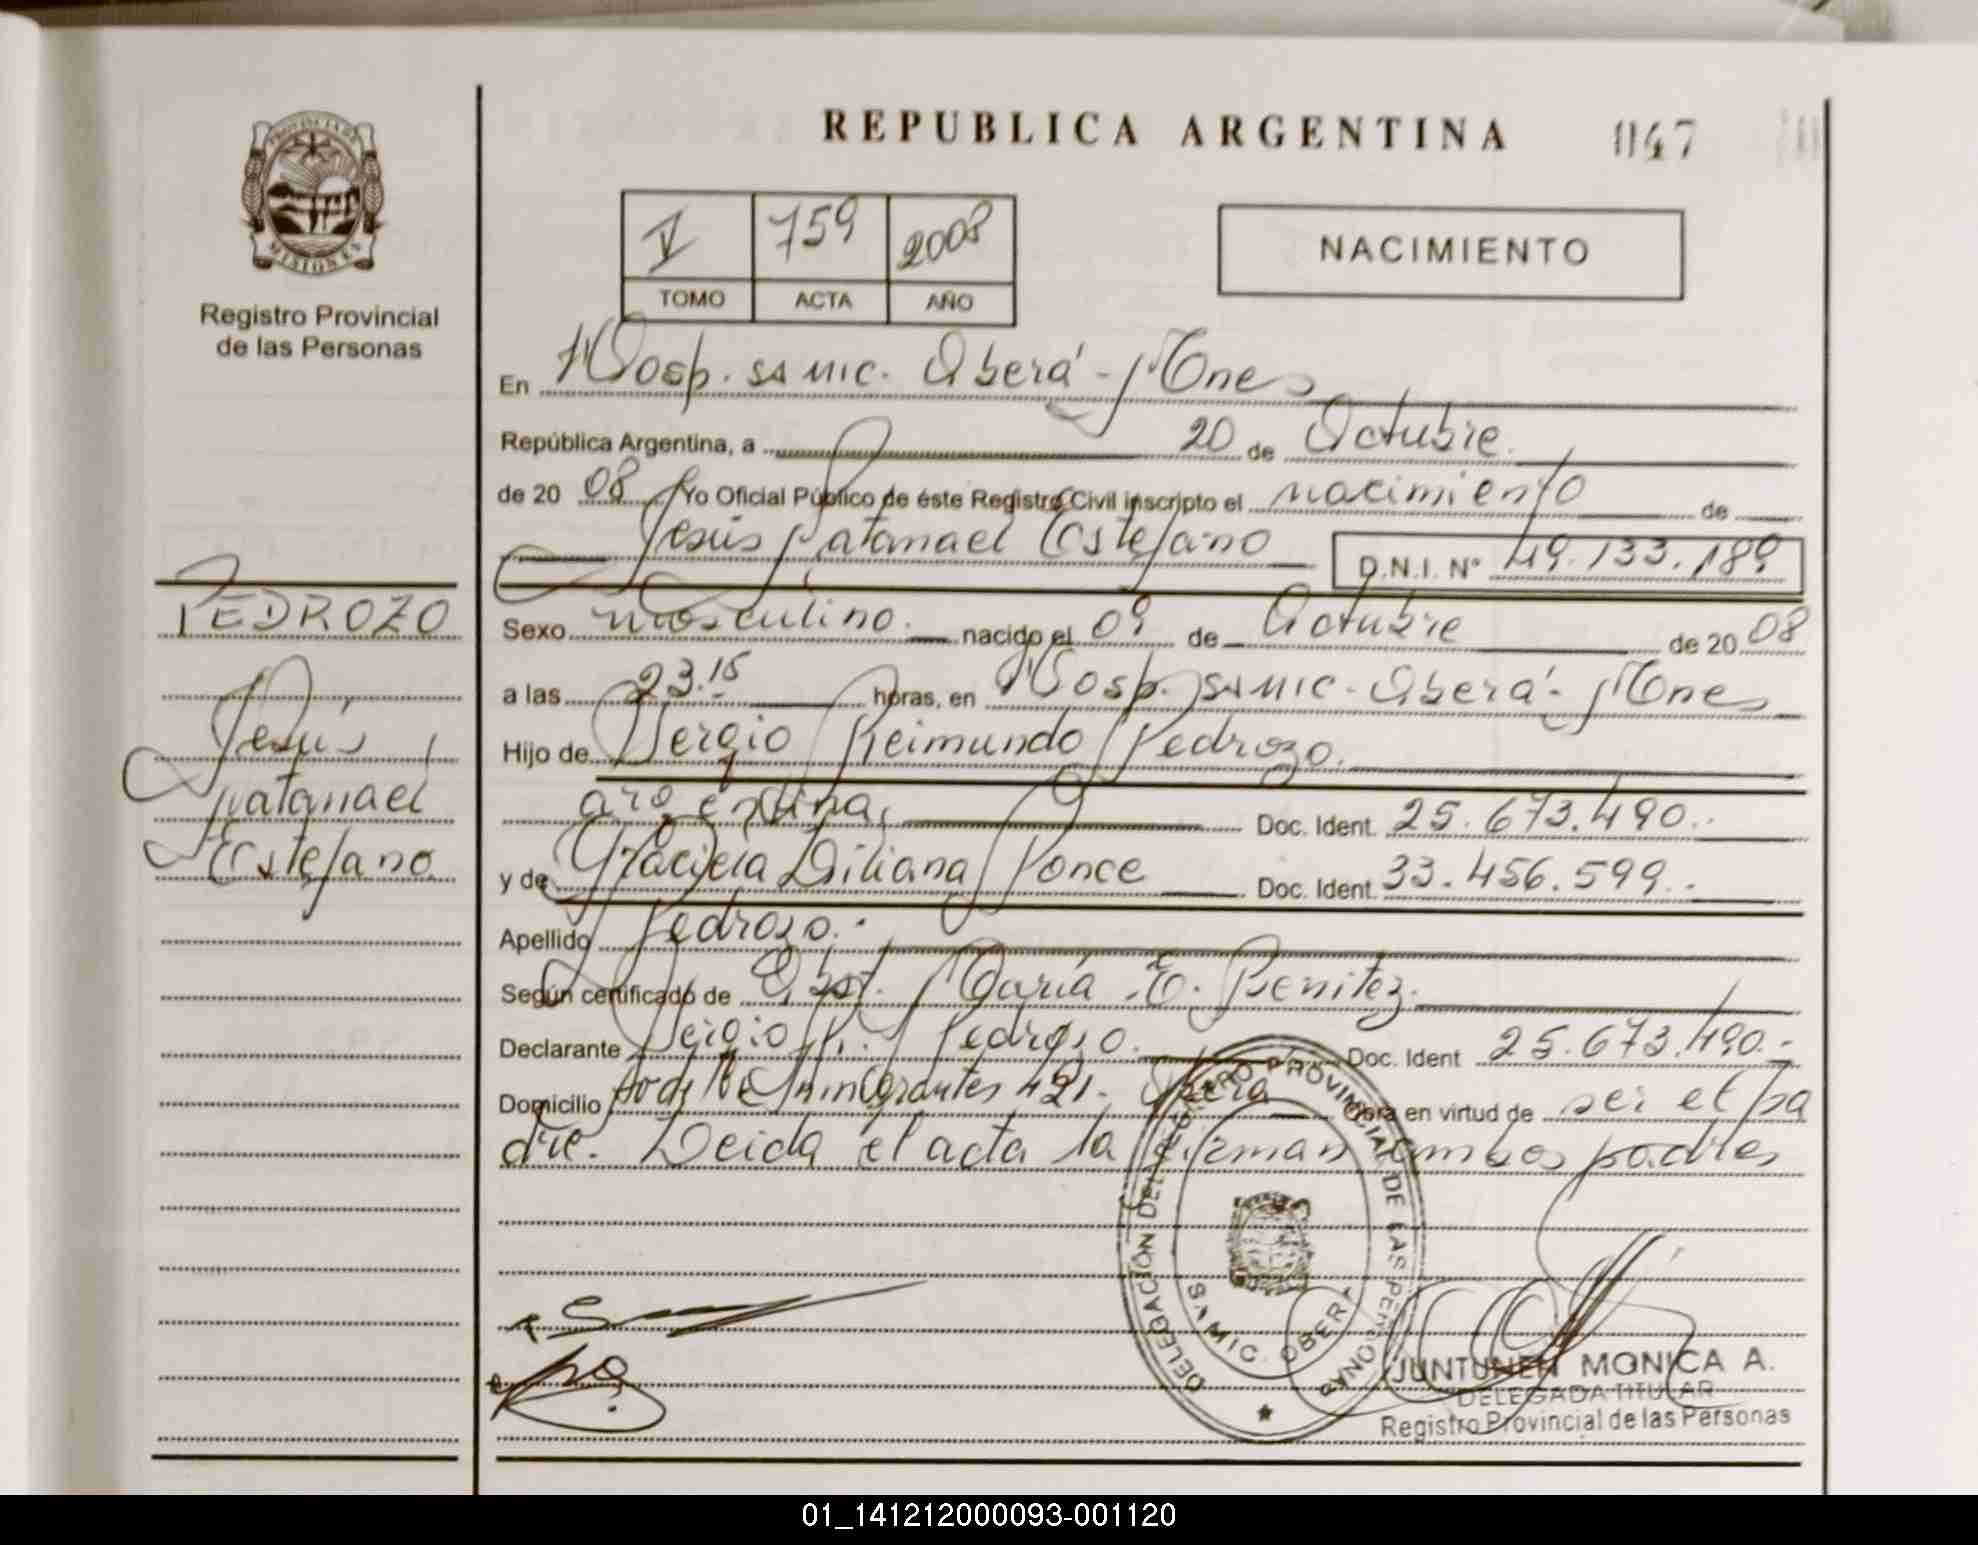 REPUBLICA ARGENTINA 1147
PROVINCIA DE
MISIONES
Registro Provincial
de las Personas
V 759 2008
TOMO ACTA AÑO
NACIMIENTO
En Hosp. SAMIC. Oberá - Mnes
República Argentina, a 20 de Octubre.
de 20 08 Yo Oficial Público de éste Registro Civil inscripto el nacimiento de
Jesús Natanael Estefano D.N.I. Nº 49.133.189
PEDROZO
Jesús
Natanael
Estefano
Sexo masculino. nacido el 09 de Octubre de 20 08
a las 23.15 horas, en Hosp. SAMIC - Oberá - Mnes
Hijo de Sergio Reimundo Pedrozo.
argentina, Doc. Ident. 25.673.490.
y de Graciela Liliana Ponce Doc. Ident. 33.456.599.
Apellido Pedrozo.
Según certificado de Obst. María E. Benitez.
Declarante Sergio R. Pedrozo. Doc. Ident 25.673.490.-
Domicilio Inmigrantes 421. Oberá Obra en virtud de ser el pa
dre. Leida el acta la firman ambos padres
DELEGACIÓN DEL REGISTRO PROVINCIAL DE LAS PERSONAS
SAMIC. OBERÁ
JUNTUNEN MONICA A.
DELEGADA TITULAR
Registro Provincial de las Personas
01_141212000093-001120